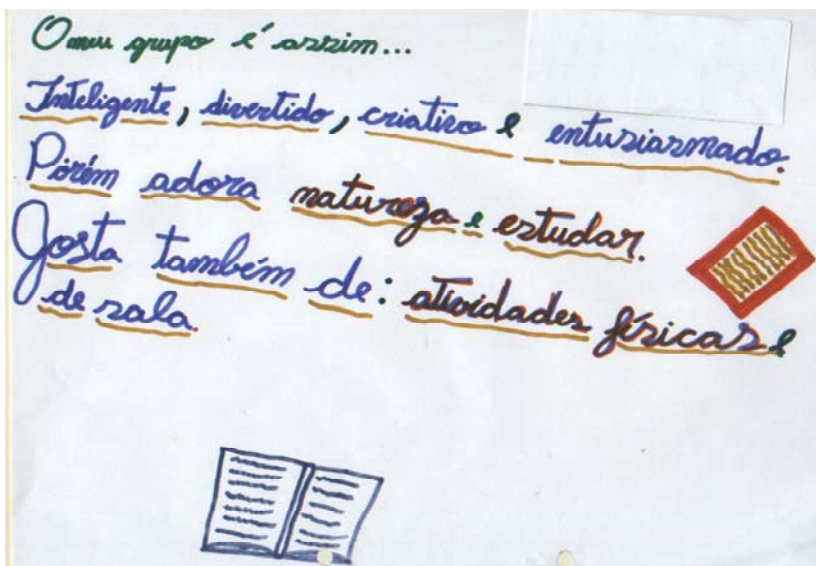 O meu grupo é assim...
Inteligente, divertido, criativo e entusiasmado.
Porém adora natureza e estudar.
Gosta também de: atividades físicas e
de sala.